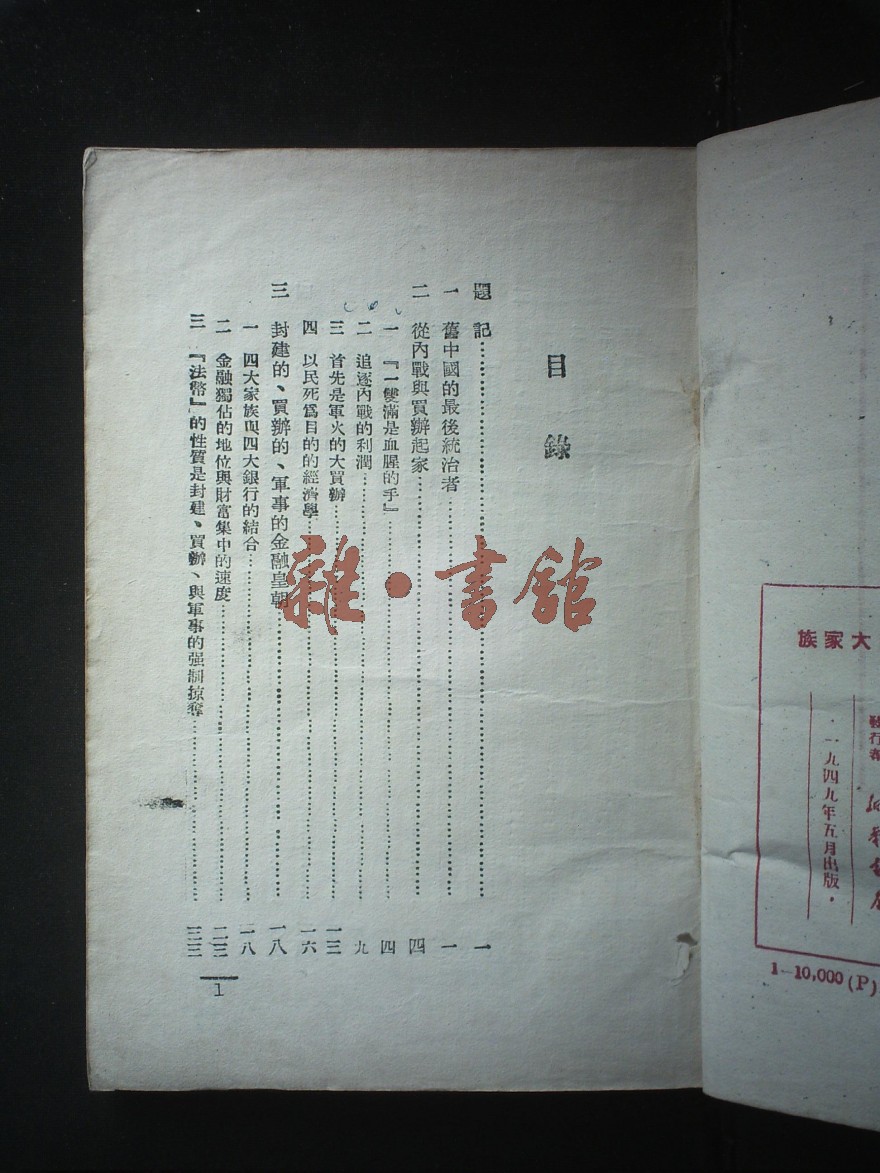 大家族
發行者
·一九四九年五月出版·
1—10,000 (P)
目錄
題記……一
一 舊中國的最後統治者……一
二 從內戰與買辦起家……四
一 『一雙滿是血腥的手』……四
二 追逐內戰的利潤……九
三 首先是軍火的大買辦……一三
四 以民死爲目的的經濟學……一六
三 封建的、買辦的、軍事的金融皇朝……一八
一 四大家族與四大銀行的結合……一八
二 金融獨佔的地位與財富集中的速度……二三
三 『法幣』的性質是封建、買辦、與軍事的强制掠奪……三三
1
雜·書館